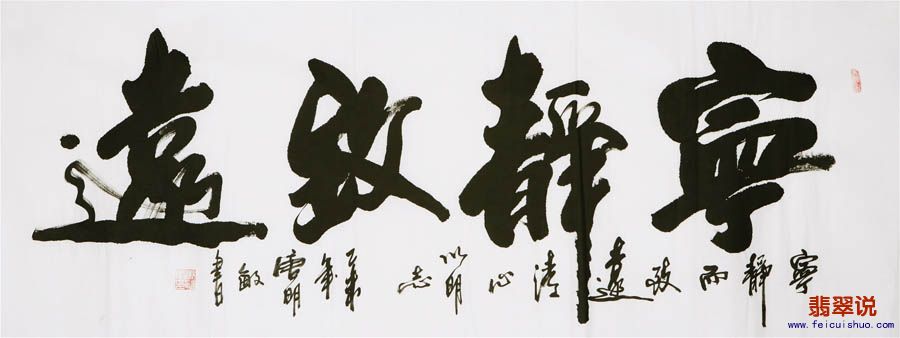 寧靜致遠
寧靜而致遠清心以明志
翡翠说
www.feicuishuo.com